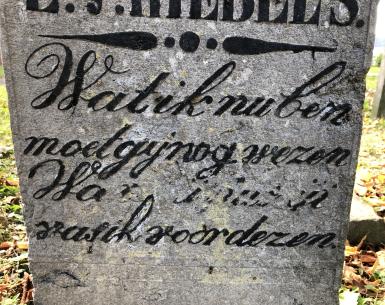 E. J. RIEDEL'S.
Wat ik nu ben
moet gij nog wezen
Wa
was ik voor dezen.